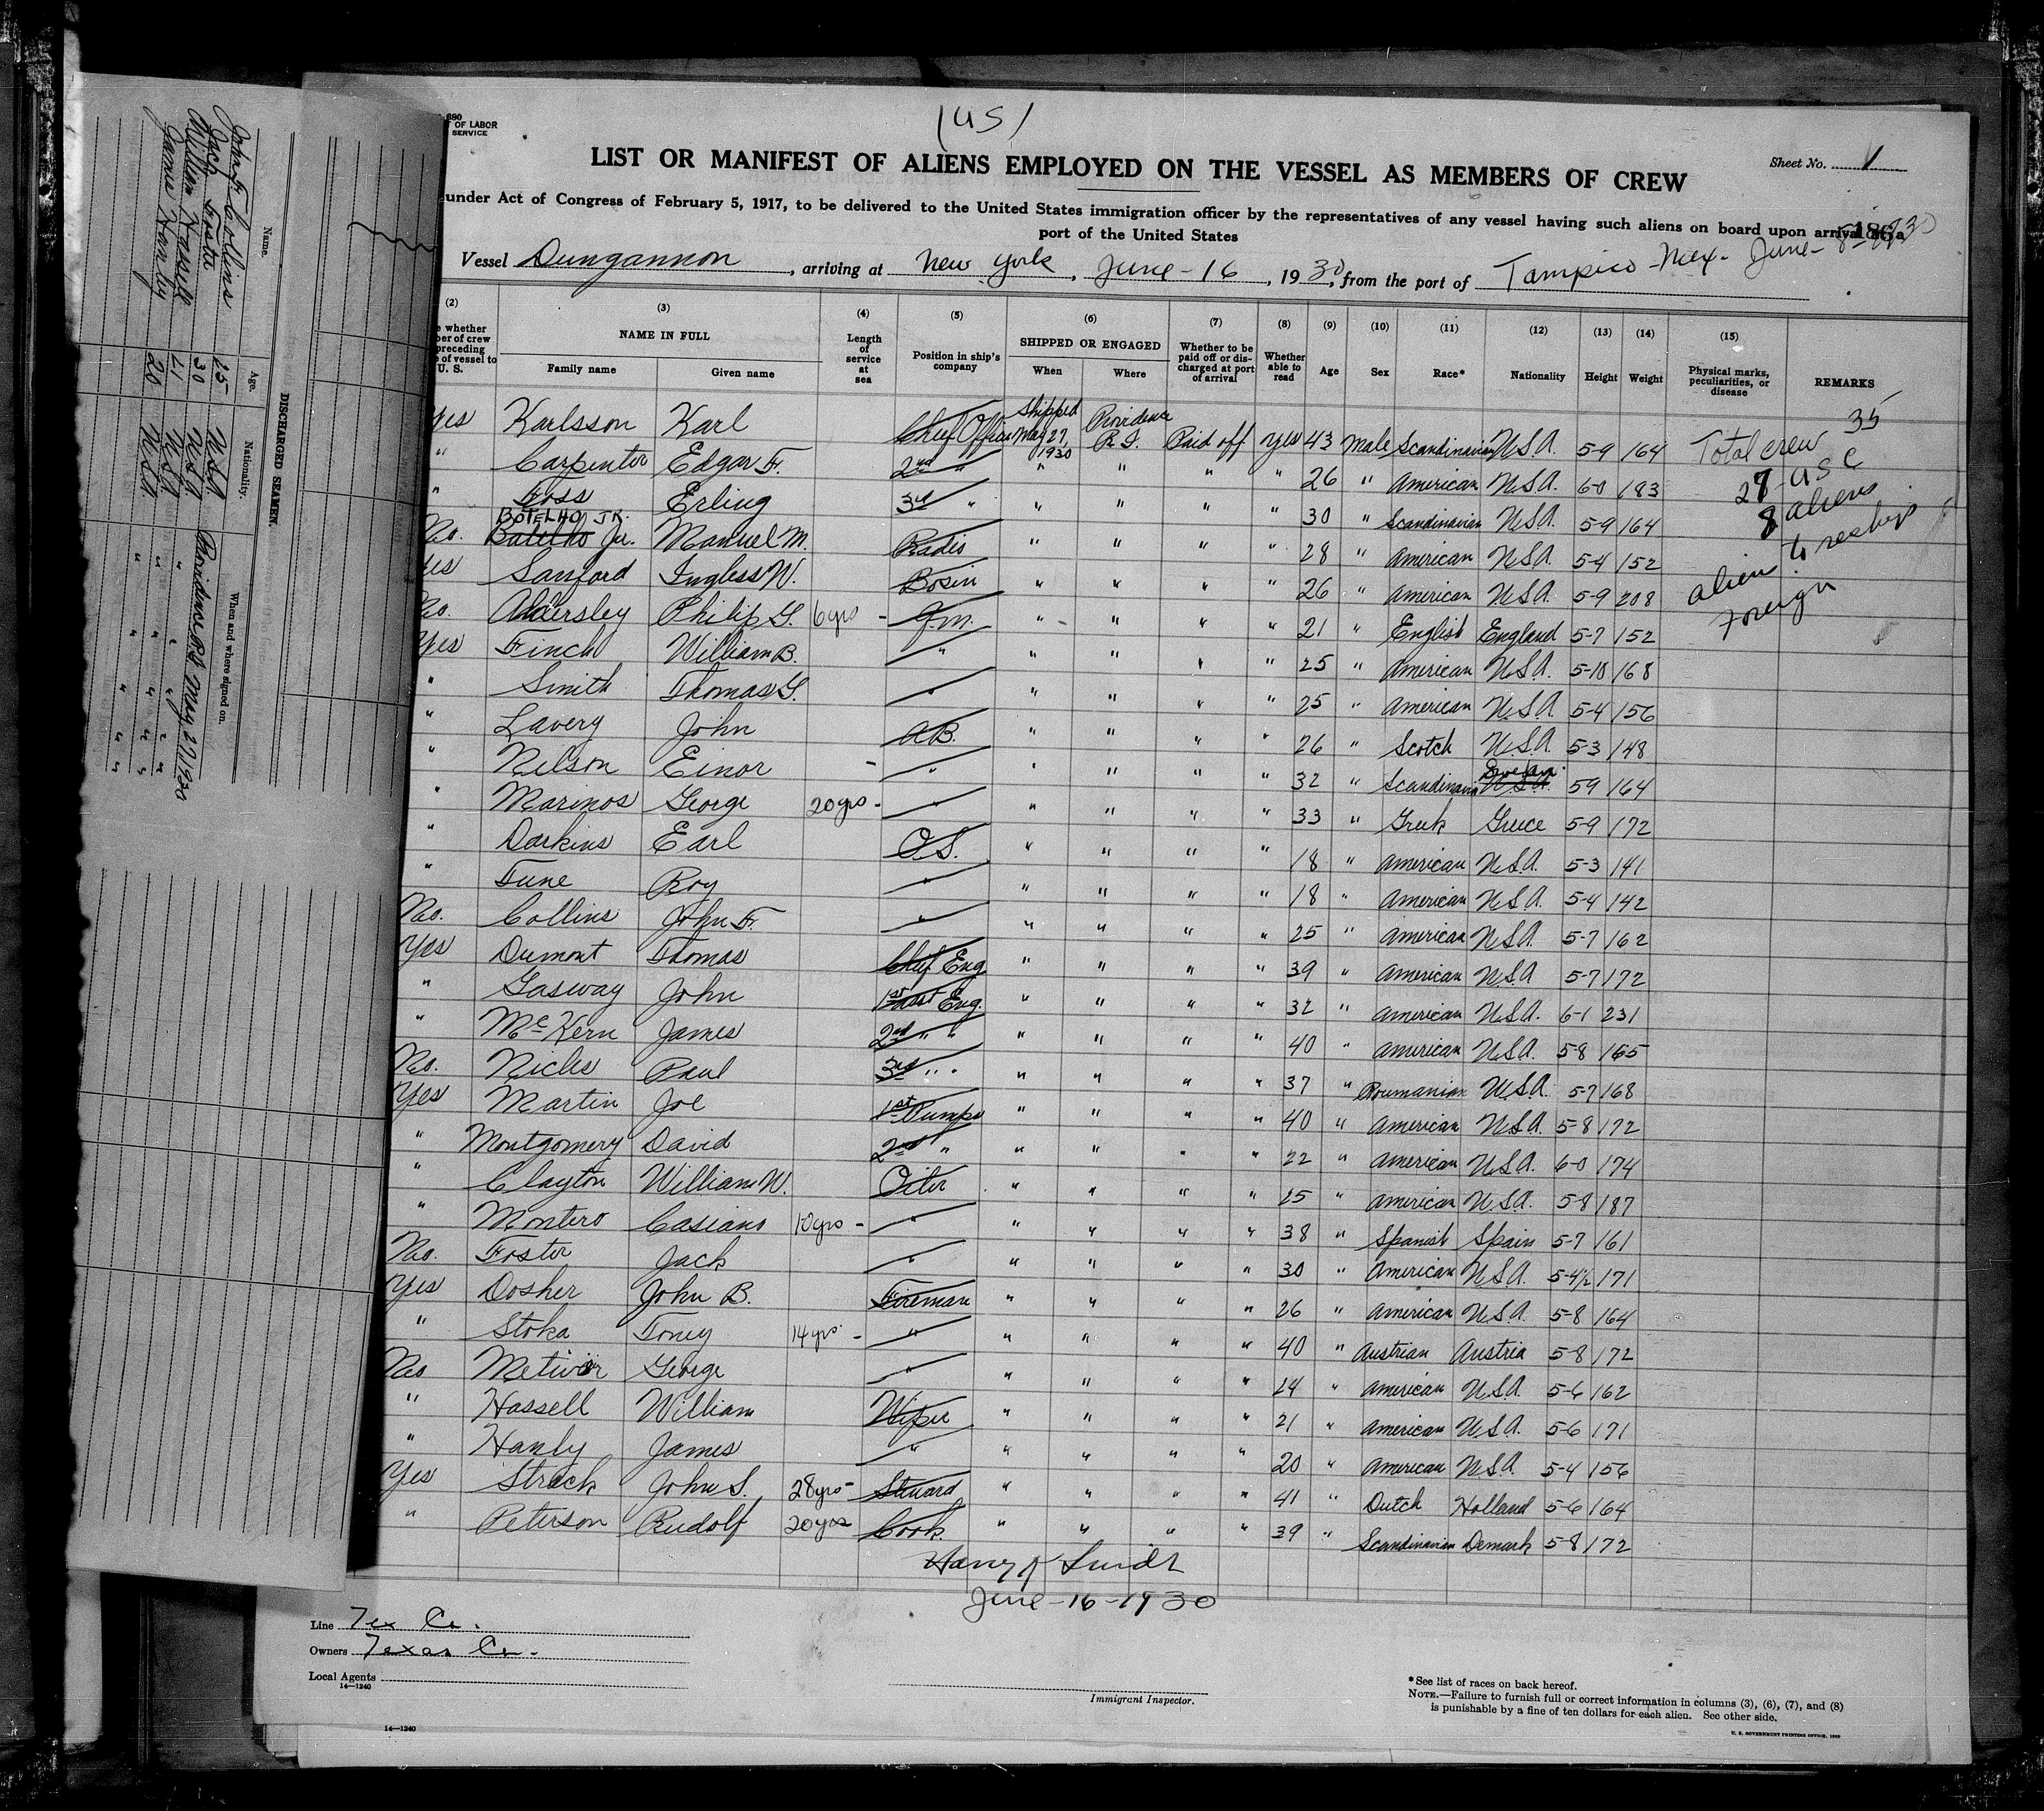 680
T OF LABOR
SERVICE
(US)
LIST OR MANIFEST OF ALIENS EMPLOYED ON THE VESSEL AS MEMBERS OF CREW
Sheet No. 1
under Act of Congress of February 5, 1917, to be delivered to the United States immigration officer by the representatives of any vessel having such aliens on board upon arrival at a
port of the United States
Vessel Dungannon, arriving at New York, June-16, 1930, from the port of Tampico Mex. June-
(2) (3) (4) (5) (6) (7) (8) (9) (10) (11) (12) (13) (14) (15)
whether
ber of crew
preceding
of vessel to
U. S.
NAME IN FULL
Family name Given name
Length of service at sea
Position in ship's company
SHIPPED OR ENGAGED
When Where
Whether to be paid off or discharged at port of arrival
Whether able to read
Age Sex Race* Nationality Height Weight
Physical marks, peculiarities, or disease
REMARKS
Yes Karlsson Karl Chief Officer Shipped May 27, 1930 Providence R.I. Paid off Yes 43 Male Scandinavian U.S.A. 5-9 164
" Carpenter Edgar F. 2nd " " " " " 26 " American U.S.A. 6-0 183
" Foss Erling 3rd " " " " " 30 " Scandinavian U.S.A. 5-9 164
BOTELHO JR.
No. Botelho Jr. Manuel M. Radio " " " " 28 " American U.S.A. 5-4 152
Yes Sanford Ingless W. Bosin " " " " 26 " American U.S.A. 5-9 208
No. Aldersley Philip G. 6 yrs - Q.M. " " " " 21 " English England 5-7 152
Yes Finch William B. " " " " " 25 " American U.S.A. 5-10 168
" Smith Thomas G. " " " " " 25 " American U.S.A. 5-4 156
" Lavery John A.B. " " " " 26 " Scotch U.S.A. 5-3 148
" Nelson Einor - " " " " " 32 " Scandinavian U.S.A. Sweden 59 164
" Marinos George 20 yrs - " " " " " 33 " Greek Greece 5-9 172
" Darkins Earl O.S. " " " " 18 " American U.S.A. 5-3 141
" Tune Roy " " " " " 18 " American U.S.A. 5-4 142
No. Collins John F. " " " " " 25 " American U.S.A. 5-7 162
Yes Dumont Thomas Chief Eng " " " " 39 " American U.S.A. 5-7 172
" Gasway John 1st Asst Eng. " " " " 32 " American U.S.A. 6-1 231
" McKern James 2nd " " " " " " 40 " American U.S.A. 5-8 165
No. Nicles Paul 3rd " " " " " " 37 " Roumanian U.S.A. 5-7 168
Yes Martin Joe 1st Pumps " " " " 40 " American U.S.A. 5-8 172
" Montgomery David 2nd " " " " " 22 " American U.S.A. 6-0 174
" Clayton William W. Oiler " " " " 25 " American U.S.A. 5-8 187
" Montero Casiano 10 yrs - " " " " " 38 " Spanish Spain 5-7 161
No. Foster Jack " " " " " 30 " American U.S.A. 5-4½ 171
Yes Dosher John B. Fireman " " " " 26 " American U.S.A. 5-8 164
" Stoka Toney 14 yrs. - " " " " " 40 " Austrian Austria 5-8 172
No George " " " " " 24 " American U.S.A. 5-6 162
" Hassell William Wiper " " " " 21 " American U.S.A. 5-6 171
" Hanly James " " " " " 20 " American U.S.A. 5-4 156
Yes Strack John S. 28 yrs - Steward " " " " 41 " Dutch Holland 5-6 164
" Peterson Rudolf 20 yrs Cook " " " " 39 " Scandinavian Demark 5-8 172
Total crew 35
27 USC
8 aliens
alien to reship
Foreign
June-16-1930
Line Tex Co.
Owners Texas Co.
Local Agents
14-1240
Immigrant Inspector.
*See list of races on back hereof.
NOTE.—Failure to furnish full or correct information in columns (3), (6), (7), and (8)
is punishable by a fine of ten dollars for each alien. See other side.
U. S. GOVERNMENT PRINTING OFFICE, 1929
14-1240
DISCHARGED SEAMEN.
Name. Age. Nationality. When and where signed on.
John F. Collins 25 U.S.A. Providence R.I. May 27/1930
Jack Foster 30 U.S.A. " " " "
William Hassell 21 U.S.A. " " " "
James Hanly 20 U.S.A. " " " "